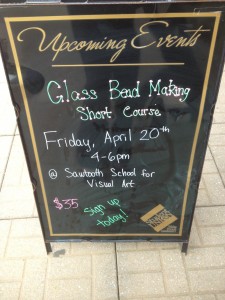 Upcoming Events
Glass Bead Making
Short Course
Friday, April 20th
4-6pm
@ Sawtooth School for
Visual Art
$35
Sign up
today!